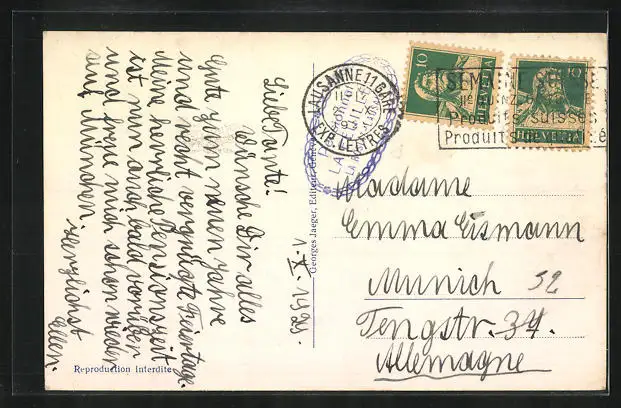 Liebe Tante!
Wünsche Dir alles
Gute zum neuen Jahre
und recht vergnügte Feiertage.
Meine herrliche Pensionszeit
ist nun auch bald vorüber
und freue mich schon wieder
auf München.
Herzlichst
Ellen.
Reproduction interdite
Georges Jaeger, Editeur, Genève
LAUSANNE 11 GARE
EXP. LETTRES
SEMAINE SUISSE
Produits suisses
Produits
10
HELVETIA
10
HELVETIA
Madame
Emma Eismann
Munich 32
Tengstr. 37.
Allemagne